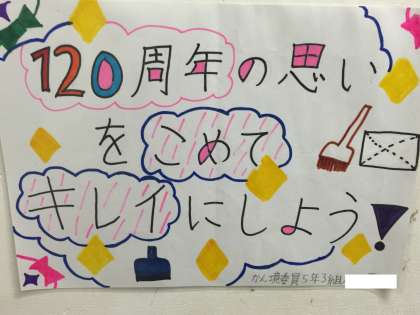 120周年の思い
をこめて
キレイにしよう!
かん境委員5年3組